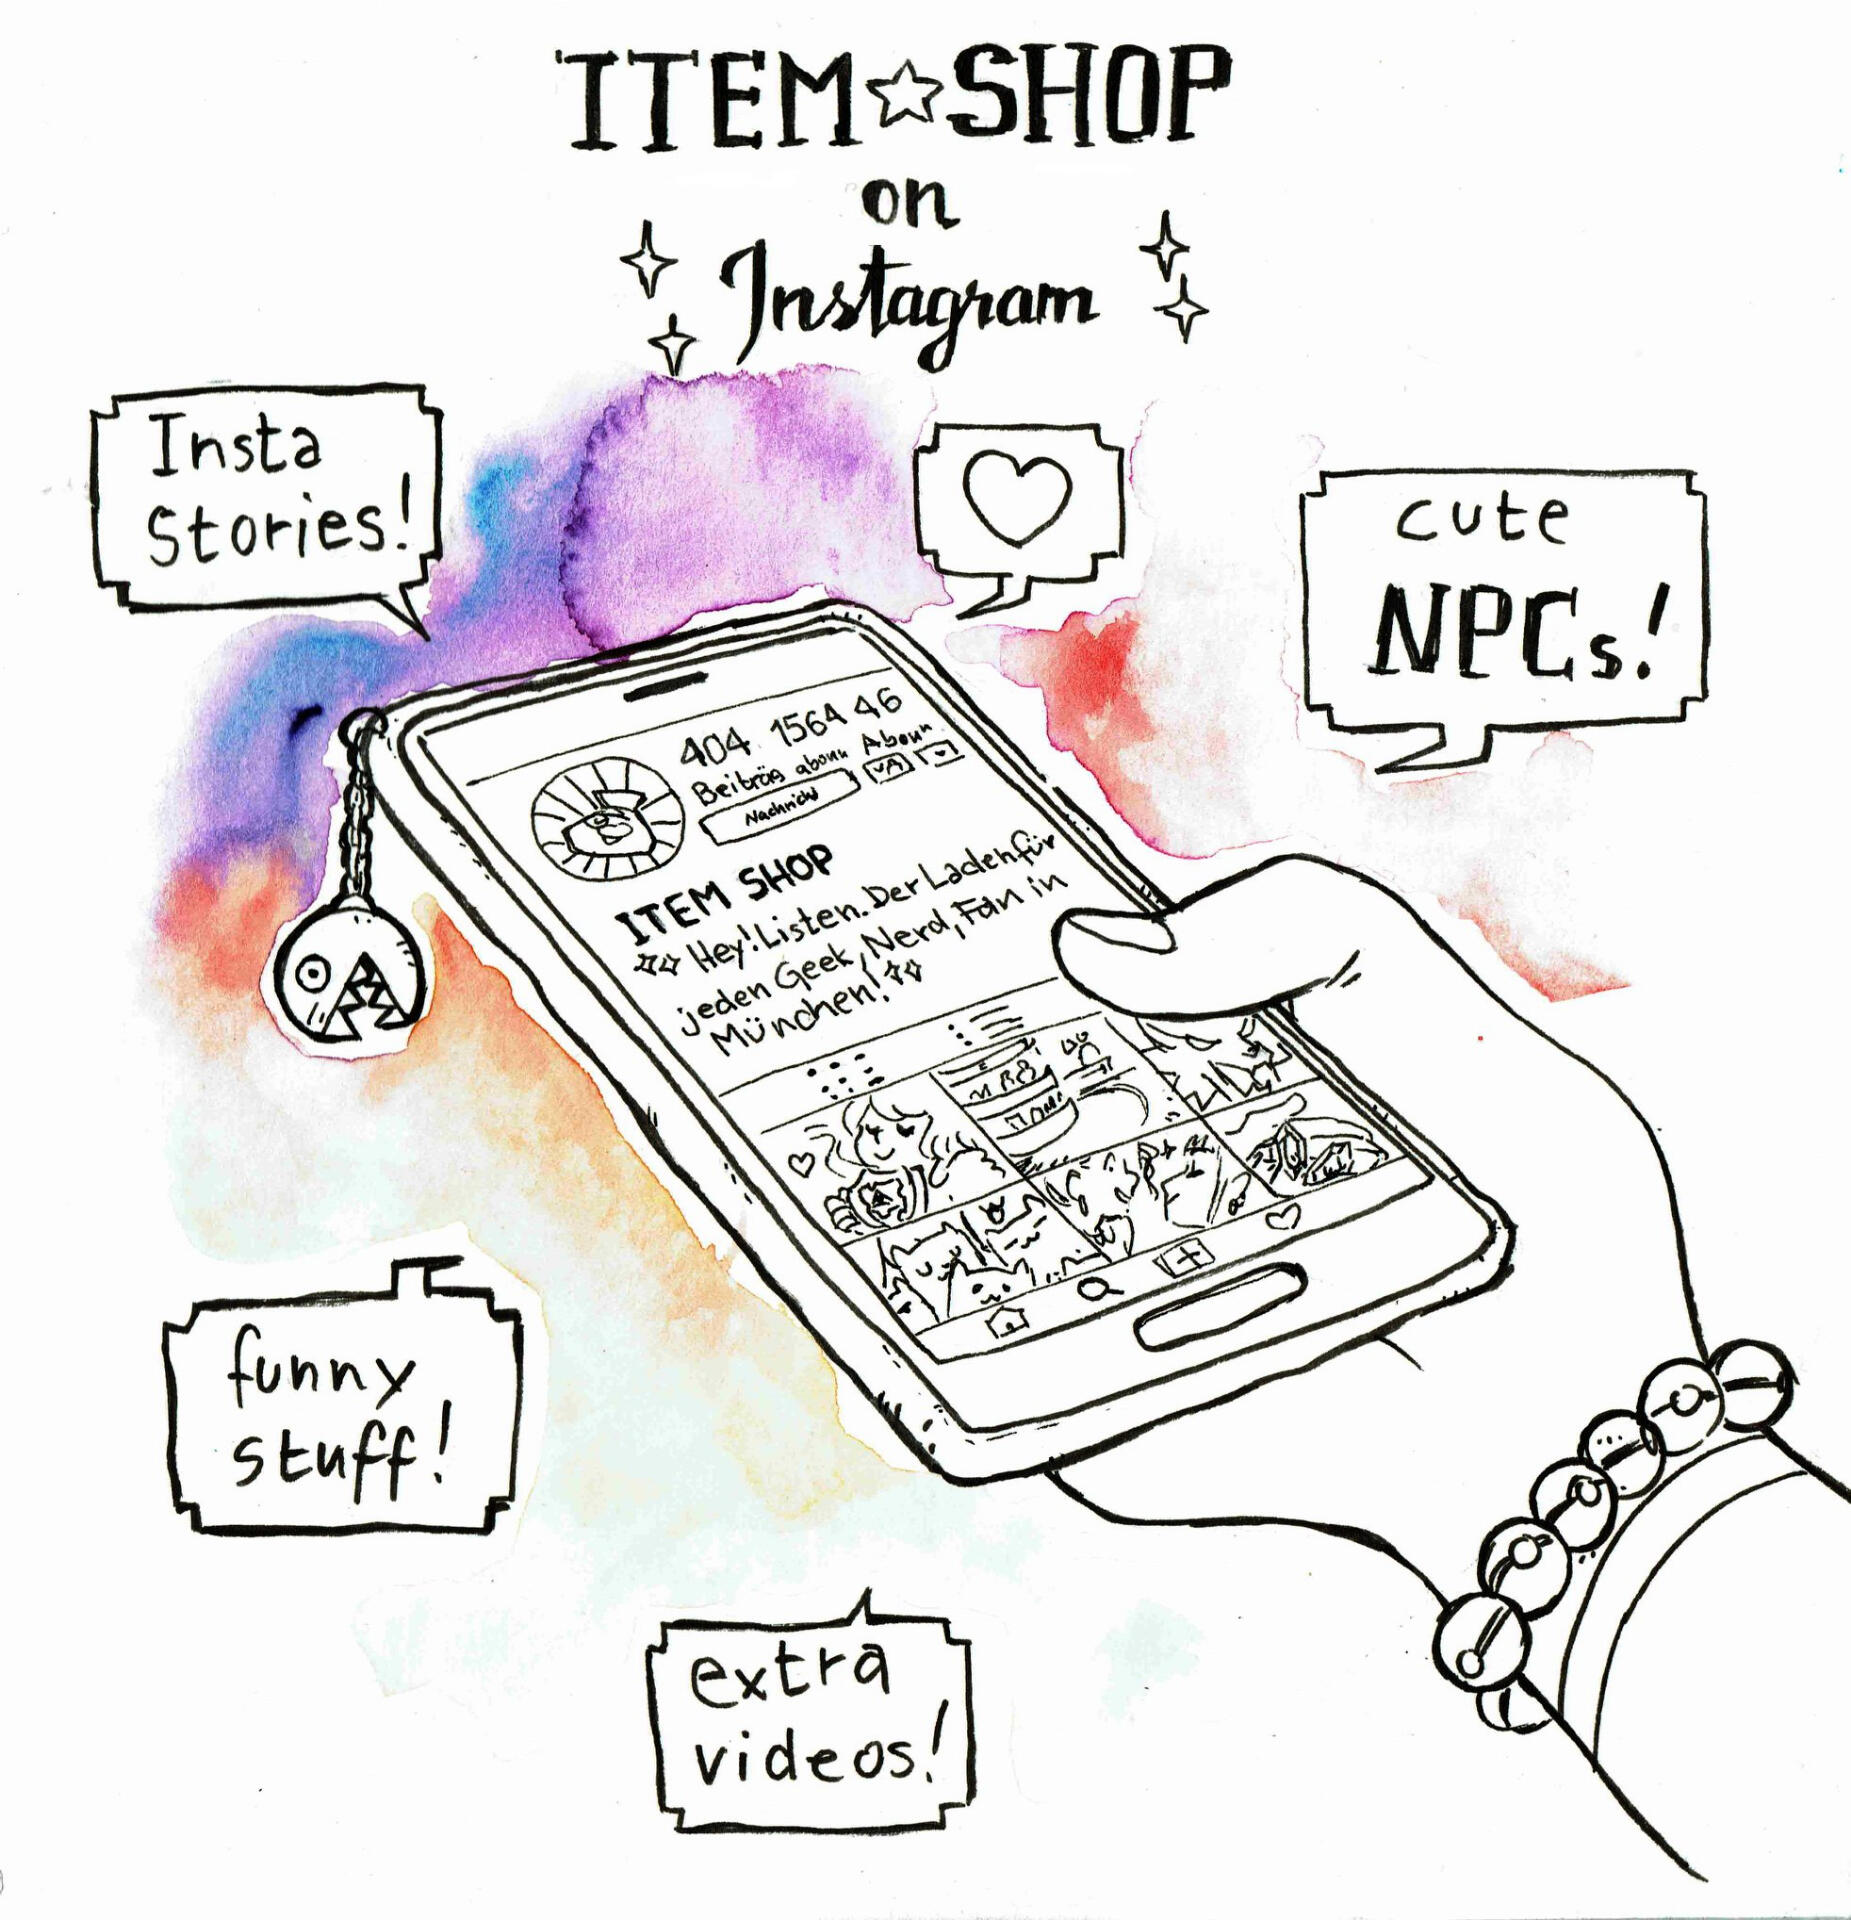 ITEM☆SHOP
on
Instagram
Insta
Stories!
cute
NPCs!
404 1564 46
Beiträg abonn Abonn
Nachricht
ITEM SHOP
Hey! Listen. Der Laden für
jeden Geek, Nerd, Fan in
München!
funny
stuff!
extra
videos!